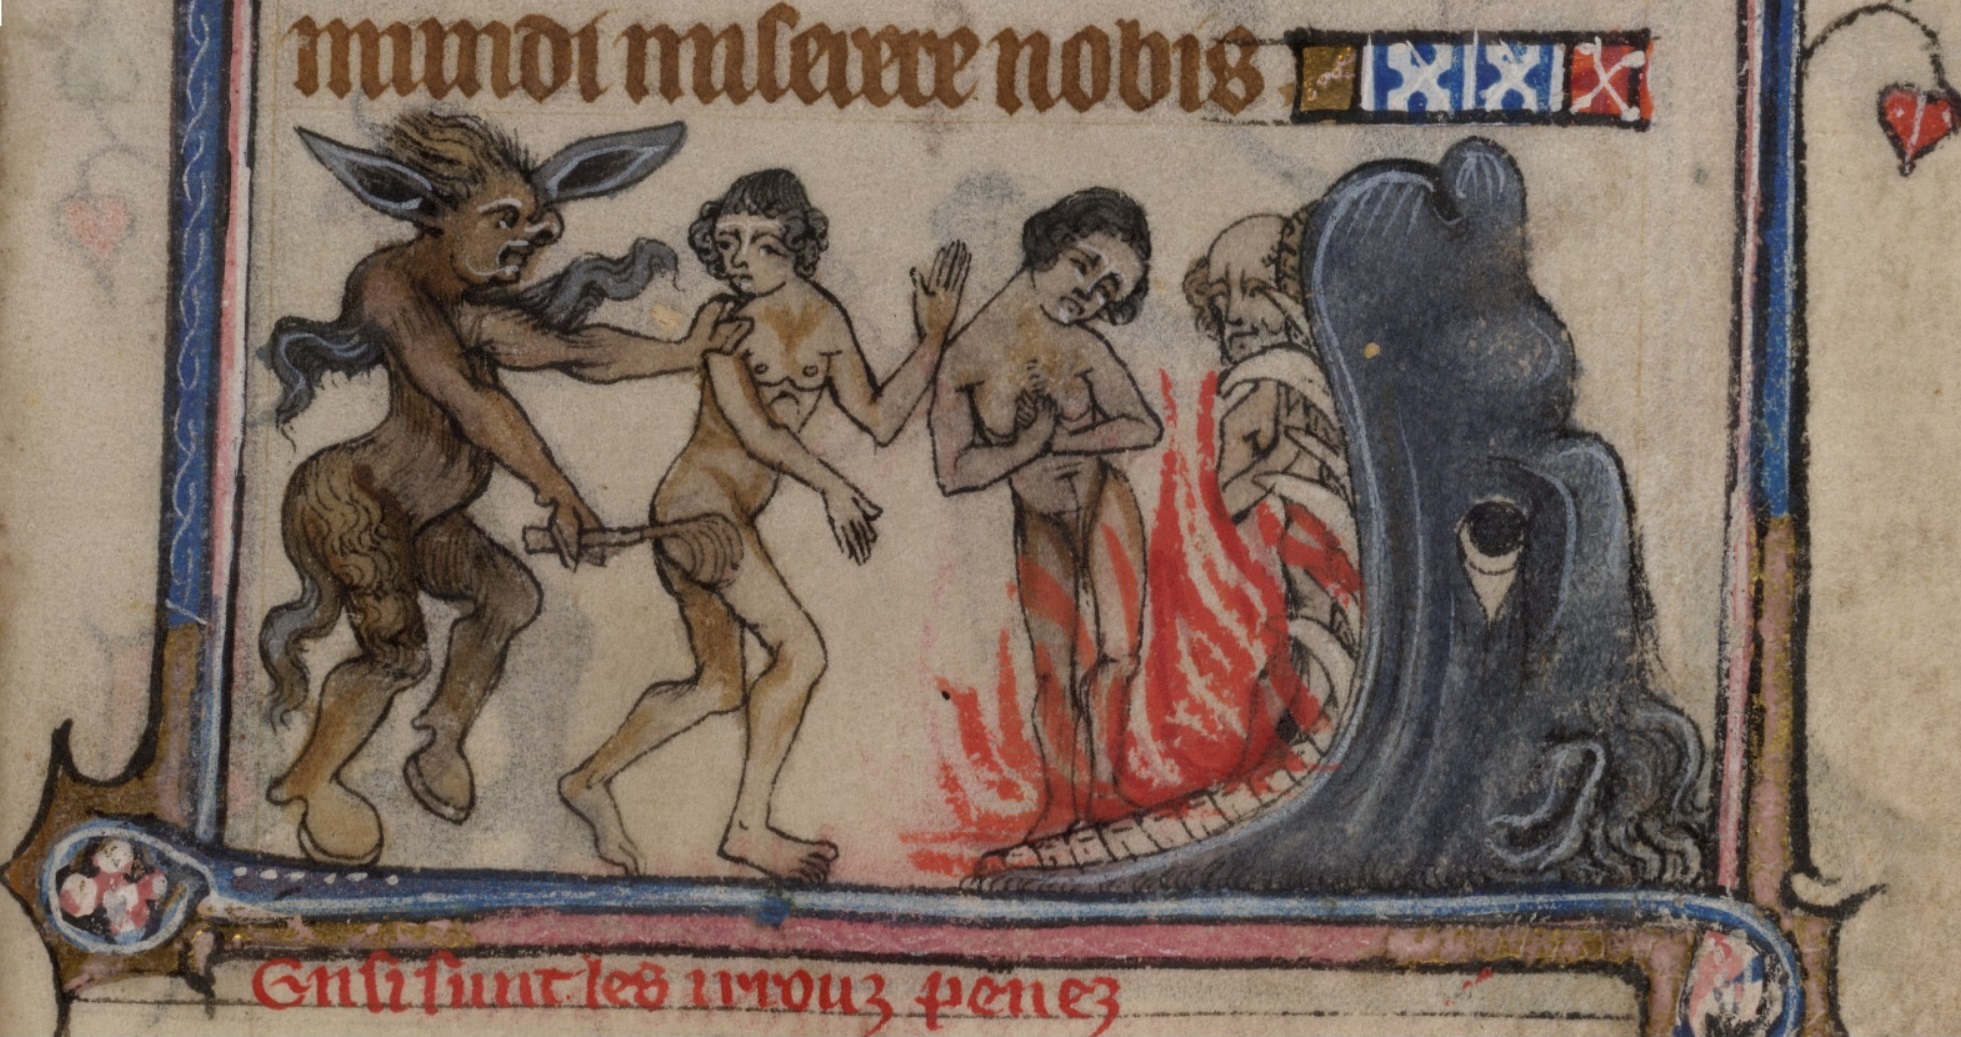 mundi miserere nobis.
Ensi sunt les irrouz penez